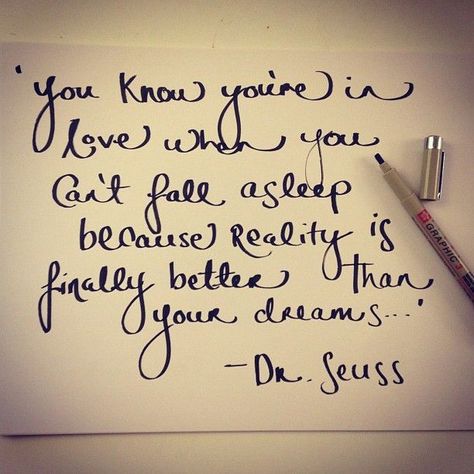 'you know you're in
love when you
can't fall asleep
because Reality is
finally better than
your dreams...'
- Dr. Seuss
GRAPHIC